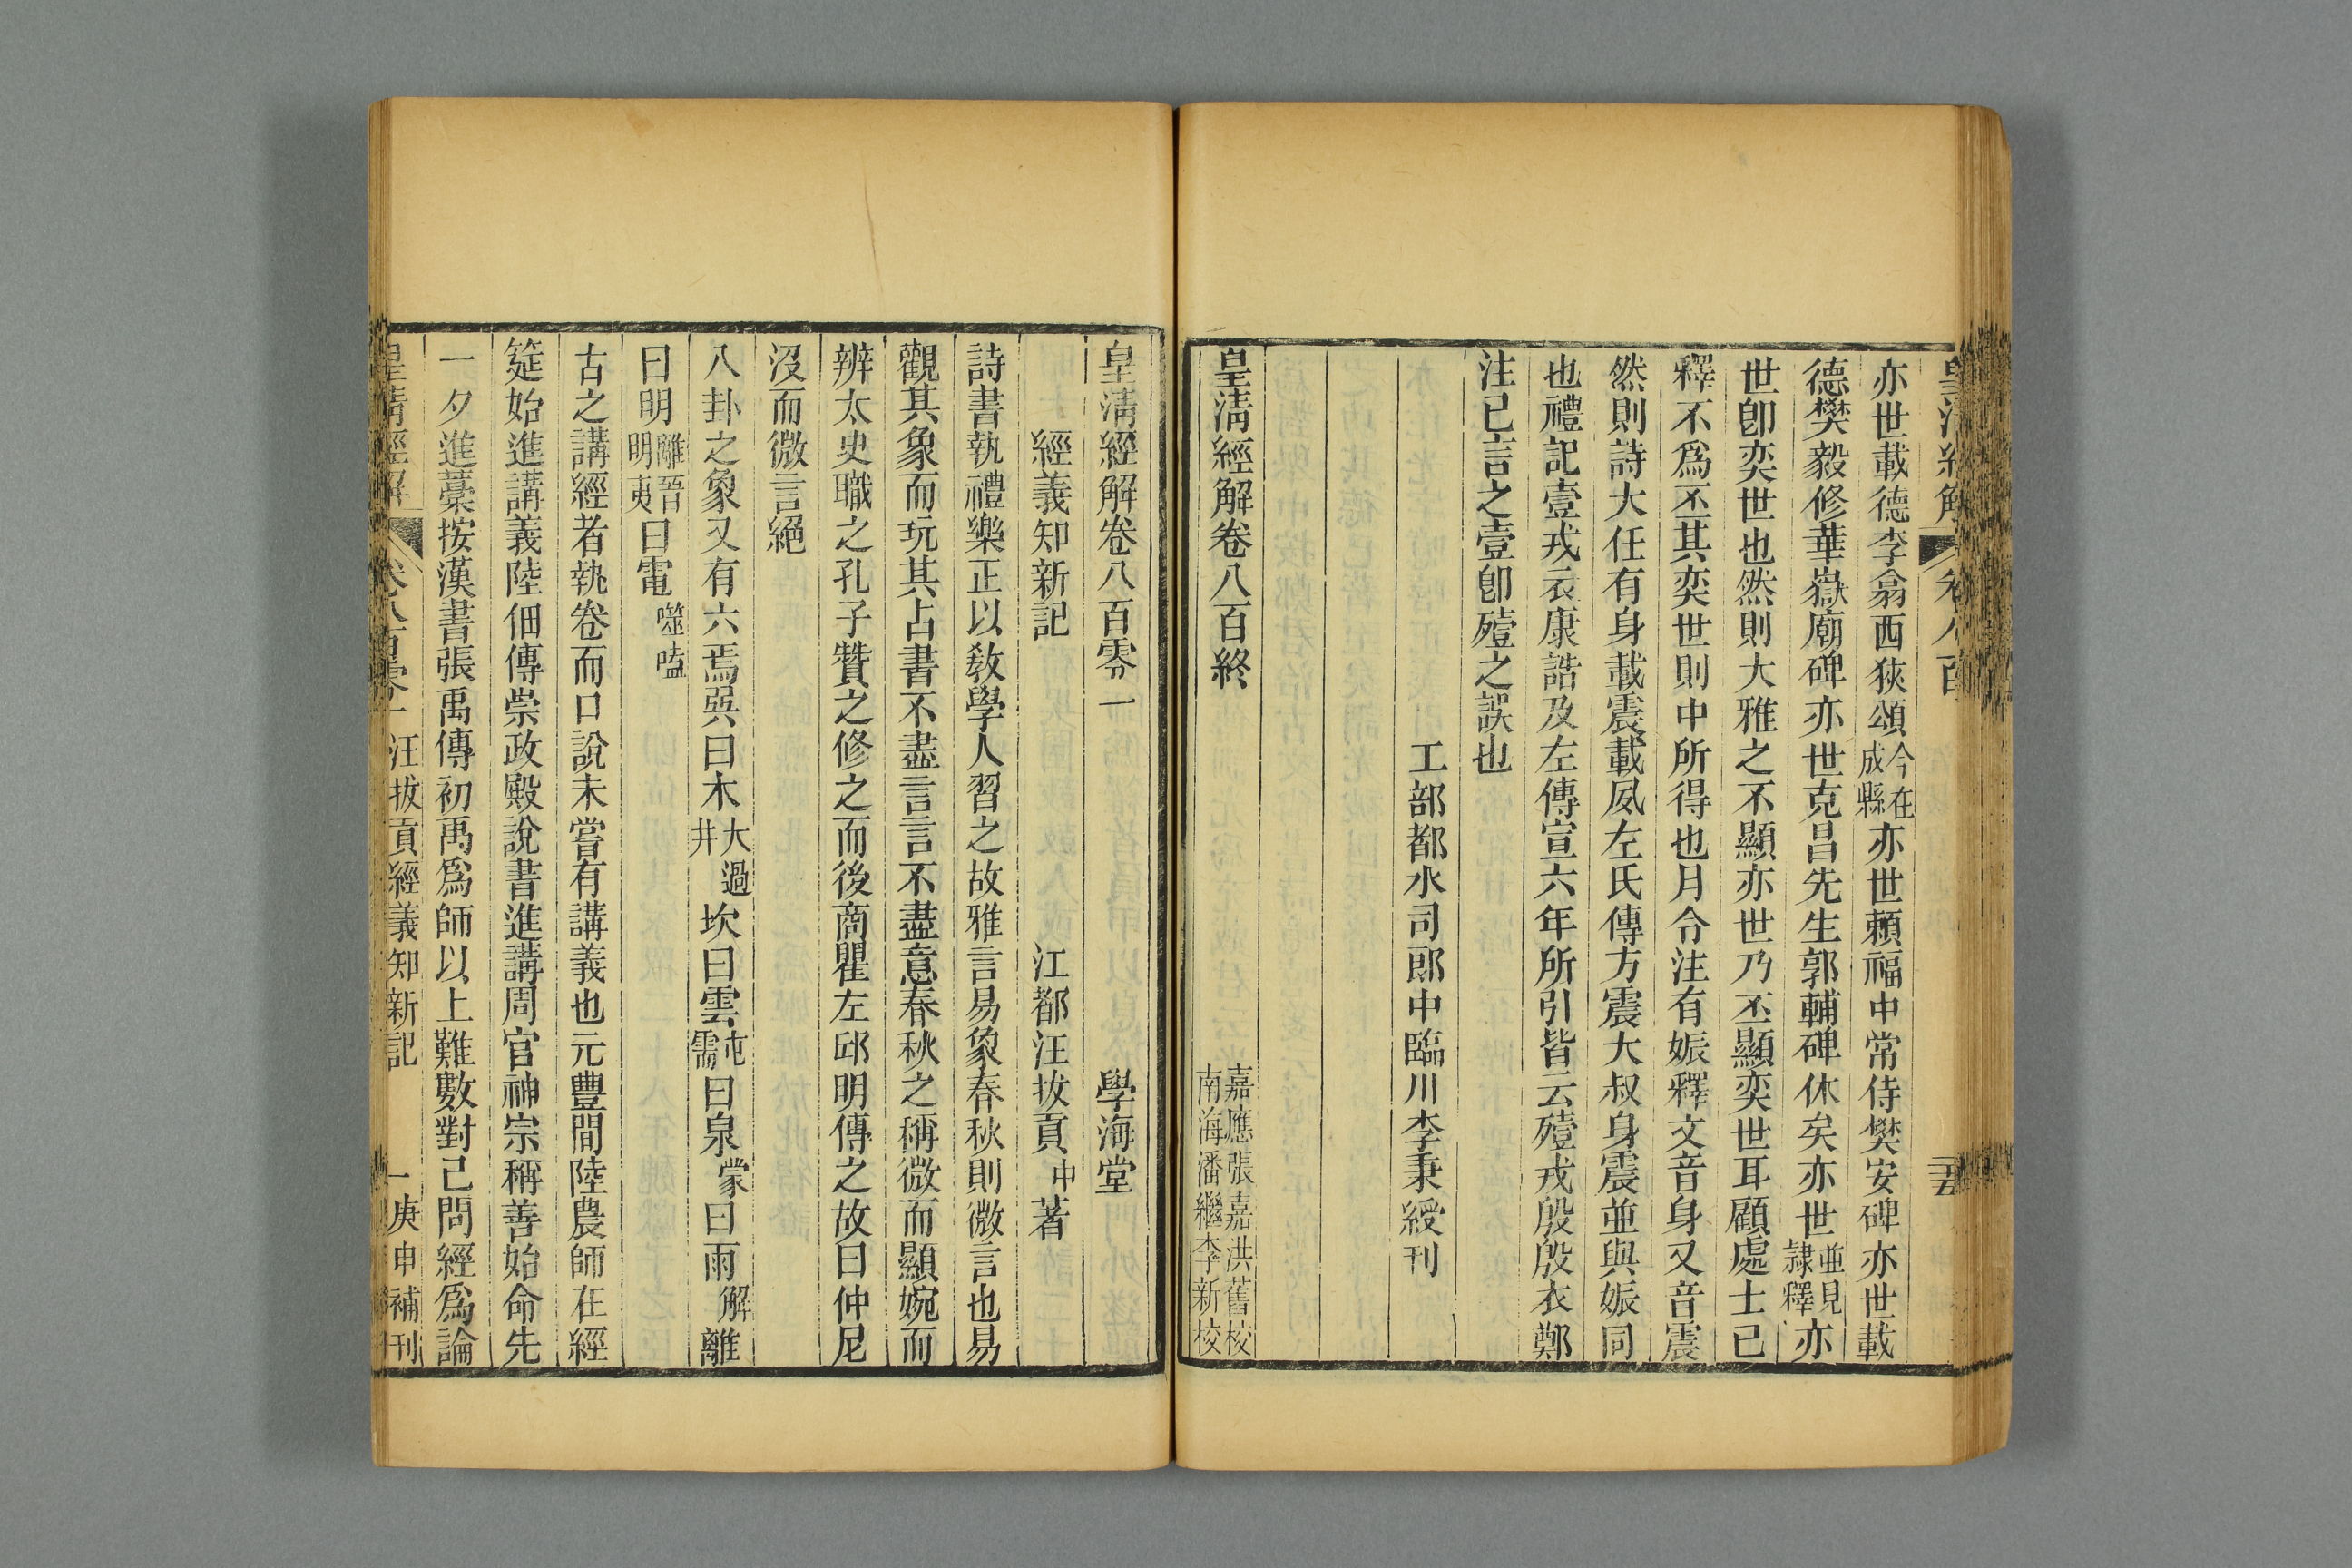 皇清經解 卷八百 二十五
亦世載德李翕西狹頌今在成縣亦世賴福中常侍樊安碑亦世載
德樊毅修華嶽廟碑亦世克昌先生郭輔碑休矣亦世並見隷釋亦
世卽奕世也然則大雅之不顯亦世乃丕顯奕世耳顧處士已
釋不爲丕其奕世則中所得也月令注有娠釋文音身又音震
然則詩大任有身載震載夙左氏傳方震大叔身震並與娠同
也禮記壹戎衣康誥及左傳宣六年所引皆云殪戎殷殷衣鄭
注已言之壹卽殪之誤也
工部都水司郎中臨川李秉綬刊
皇清經解卷八百終 嘉應張嘉洪舊校 南海潘繼李新校
皇清經解卷八百零一 學海堂
經義知新記 江都汪拔貢中著
詩書執禮樂正以敎學人習之故雅言易象春秋則微言也易
觀其象而玩其占書不盡言言不盡意春秋之稱微而顯婉而
辨太史職之孔子贊之修之而後商瞿左邱明傳之故曰仲尼
沒而微言絕
八卦之象又有六焉巽曰木大過井坎曰雲屯需曰泉蒙曰雨解離
曰明離晉明夷曰電噬嗑
古之講經者執卷而口說未嘗有講義也元豐間陸農師在經
筵始進講義陸佃傳崇政殿說書進講周官神宗稱善始命先
一夕進藁按漢書張禹傳初禹爲師以上難數對己問經爲論
皇清經解 卷八百零一 汪拔貢經義知新記 一 庚申補刊